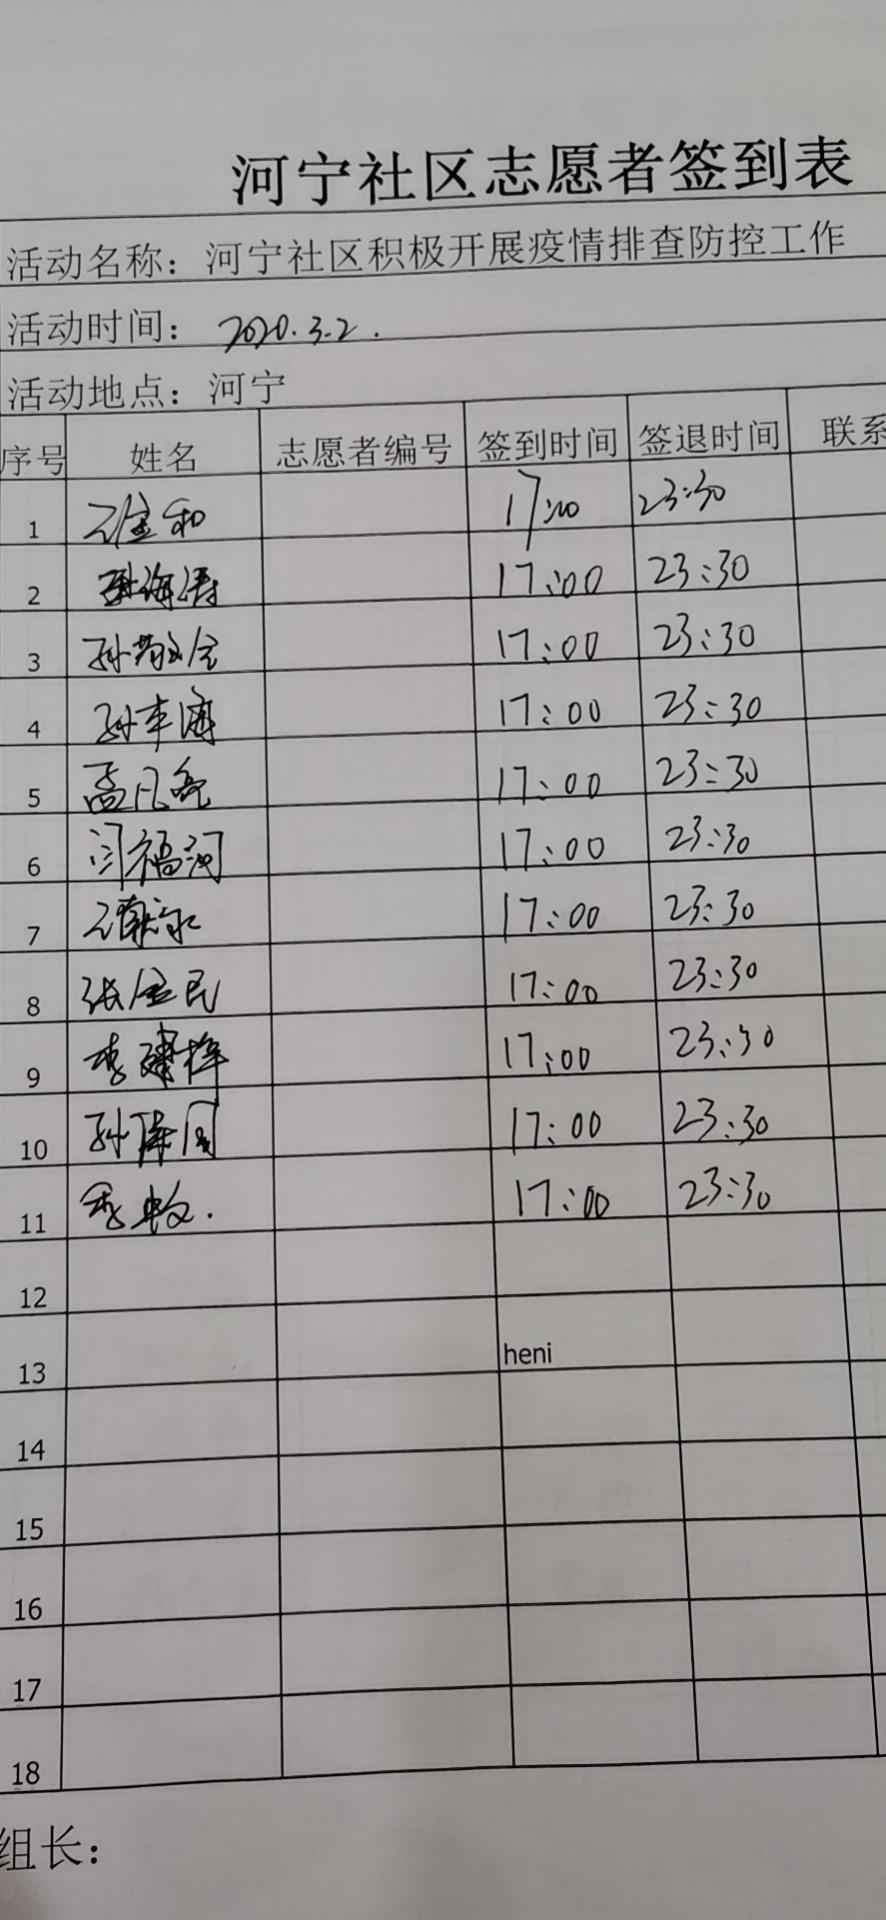 河宁社区志愿者签到表
活动名称：河宁社区积极开展疫情排查防控工作
活动时间：2020.3.2.
活动地点：河宁
序号 姓名 志愿者编号 签到时间 签退时间 联系
1 17:00 23:30
2 17:00 23:30
3 孙 17:00 23:30
4 孙 17:00 23:30
5 孟凡亮 17:00 23:30
6 闫福河 17:00 23:30
7 17:00 23:30
8 张金民 17:00 23:30
9 李建 17:00 23:30
10 孙 17:00 23:30
11 李 17:00 23:30
12
13 heni
14
15
16
17
18
组长：